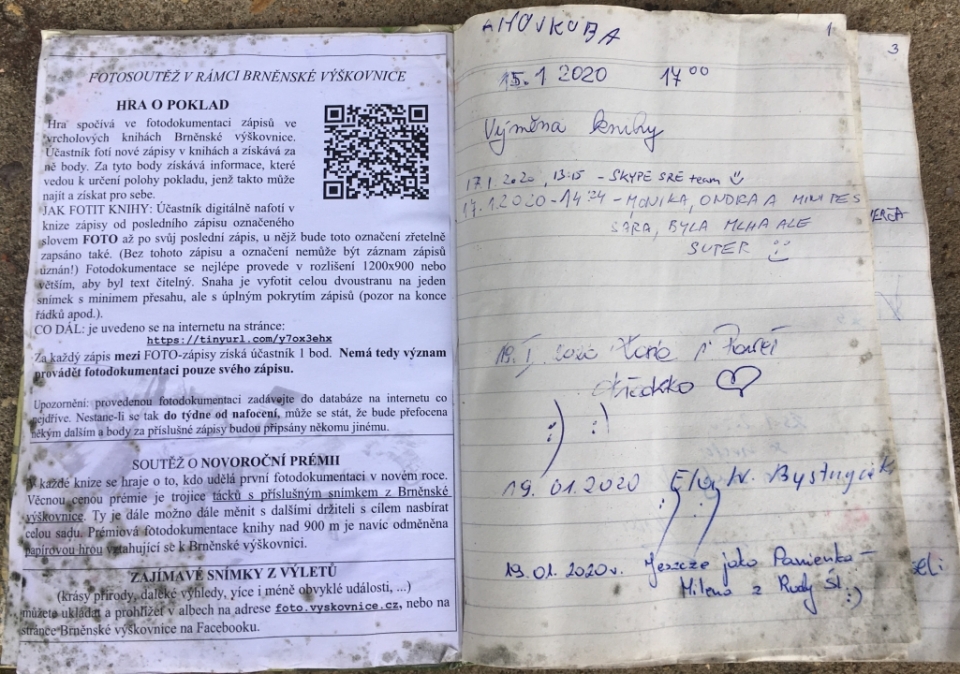 FOTOSOUTĚŽ V RÁMCI BRNĚNSKÉ VÝŠKOVNICE
HRA O POKLAD
Hra spočívá ve fotodokumentaci zápisů ve
vrcholových knihách Brněnské výškovnice.
Účastník fotí nové zápisy v knihách a získává za
ně body. Za tyto body získává informace, které
vedou k určení polohy pokladu, jenž takto může
najít a získat pro sebe.
JAK FOTIT KNIHY: Účastník digitálně nafotí v
knize zápisy od posledního zápisu označeného
slovem FOTO až po svůj poslední zápis, u nějž bude toto označení zřetelně
zapsáno také. (Bez tohoto zápisu a označení nemůže být záznam zápisů
uznán!) Fotodokumentace se nejlépe provede v rozlišení 1200x900 nebo
větším, aby byl text čitelný. Snaha je vyfotit celou dvoustranu na jeden
snímek s minimem přesahu, ale s úplným pokrytím zápisů (pozor na konce
řádků apod.).
CO DÁL: je uvedeno se na internetu na stránce:
https://tinyurl.com/y7ox3ehx
Za každý zápis mezi FOTO-zápisy získá účastník 1 bod. Nemá tedy význam
provádět fotodokumentaci pouze svého zápisu.
Upozornění: provedenou fotodokumentaci zadávejte do databáze na internetu co
nejdříve. Nestane-li se tak do týdne od nafocení, může se stát, že bude přefocena
někým dalším a body za příslušné zápisy budou připsány někomu jinému.
SOUTĚŽ O NOVOROČNÍ PRÉMII
V každé knize se hraje o to, kdo udělá první fotodokumentaci v novém roce.
Věcnou cenou prémie je trojice tácků s příslušným snímkem z Brněnské
výškovnice. Ty je dále možno dále měnit s dalšími držiteli s cílem nasbírat
celou sadu. Prémiová fotodokumentace knihy nad 900 m je navíc odměněna
papírovou hrou vztahující se k Brněnské výškovnici.
ZAJÍMAVÉ SNÍMKY Z VÝLETŮ
(krásy přírody, daleké výhledy, více i méně obvyklé události, ...)
můžete ukládat a prohlížet v albech na adrese foto.vyskovnice.cz, nebo na
stránce Brněnské výškovnice na Facebooku.
1
15.1 2020 17 00
Výměna knihy
17.1.2020, 13:15 - SKYPE SRE team
17.1.2020 - 14:24 - MONIKA, ONDRA A MINI PES
SÁRA, BYLA MLHA ALE
SUTER :)
19. I. 2020
:) :)
19.01.2020
19.01.2020r. Jeszcze jako Panienka -
Milena z Rudy Śl. :)
3